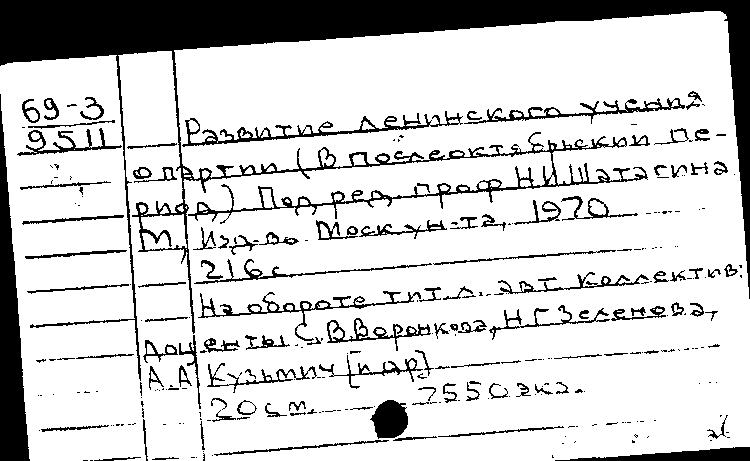 69-3
9511
Развитие ленинского учения
о партии (В послеоктябрьский пе-
риод) Под ред. проф Н.И.Шатагина
М., Изд-во Моск ун-та, 1970
216 с
На обороте тит. л. авт коллектив:
Доценты С.В.Воронкова, Н Г Зеленова,
А.А Кузьмич [и др]
20 см. 7550 экз.